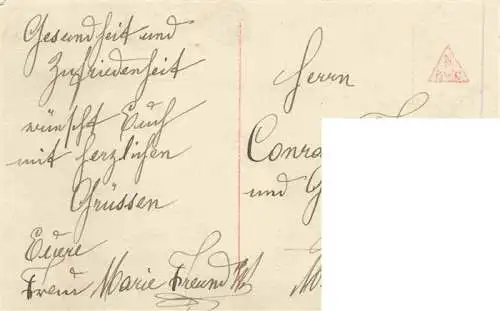 Gesundheit und
Zufriedenheit
wünscht Euch
mit herzlichen
Grüssen
Eure
Marie Freund
Herrn
Conra
und G